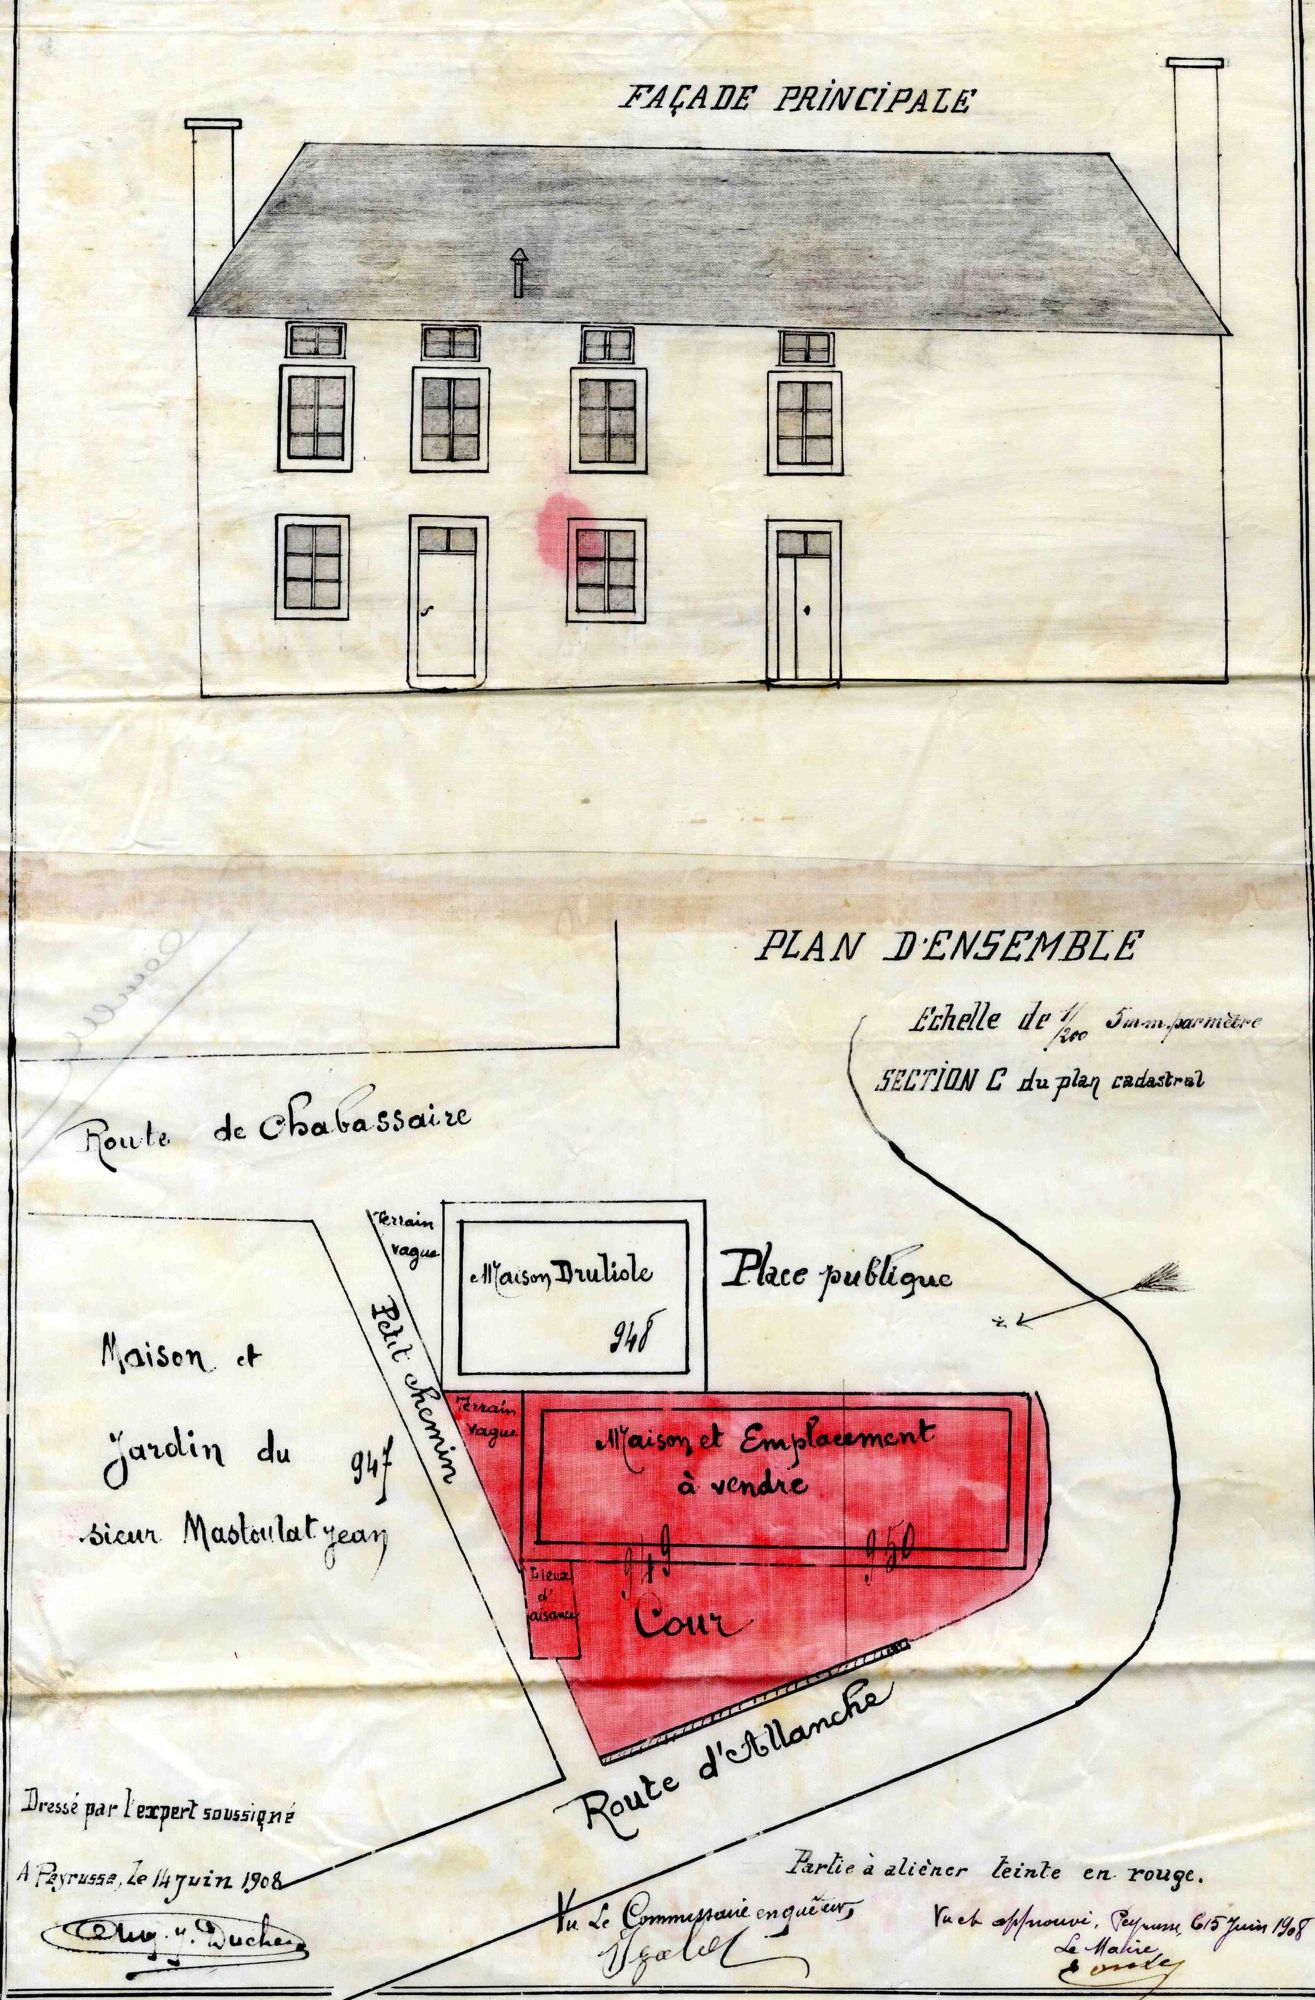 FAÇADE PRINCIPALE
PLAN D'ENSEMBLE
Echelle de 1/200 5m.m. par mètre
SECTION C du plan cadastral
Route de Chabassaire
Terrain
vague
Maison Druliole
948
Place publique
Petit chemin
Maison et
Jardin du 947
sieur Mastoulat Jean
Terrain
vague
Maison et Emplacement
à vendre
949 950
Lieux
d'
aisance
Cour
Route d'Allanche
Dressé par l'expert soussigné
A Peyrusse, le 14 juin 1908
Partie à aliéner teinte en rouge.
Vu Le Commissaire enquêteur,
Vu et approuvé, Peyrusse, le 15 Juin 1908
Le Maire